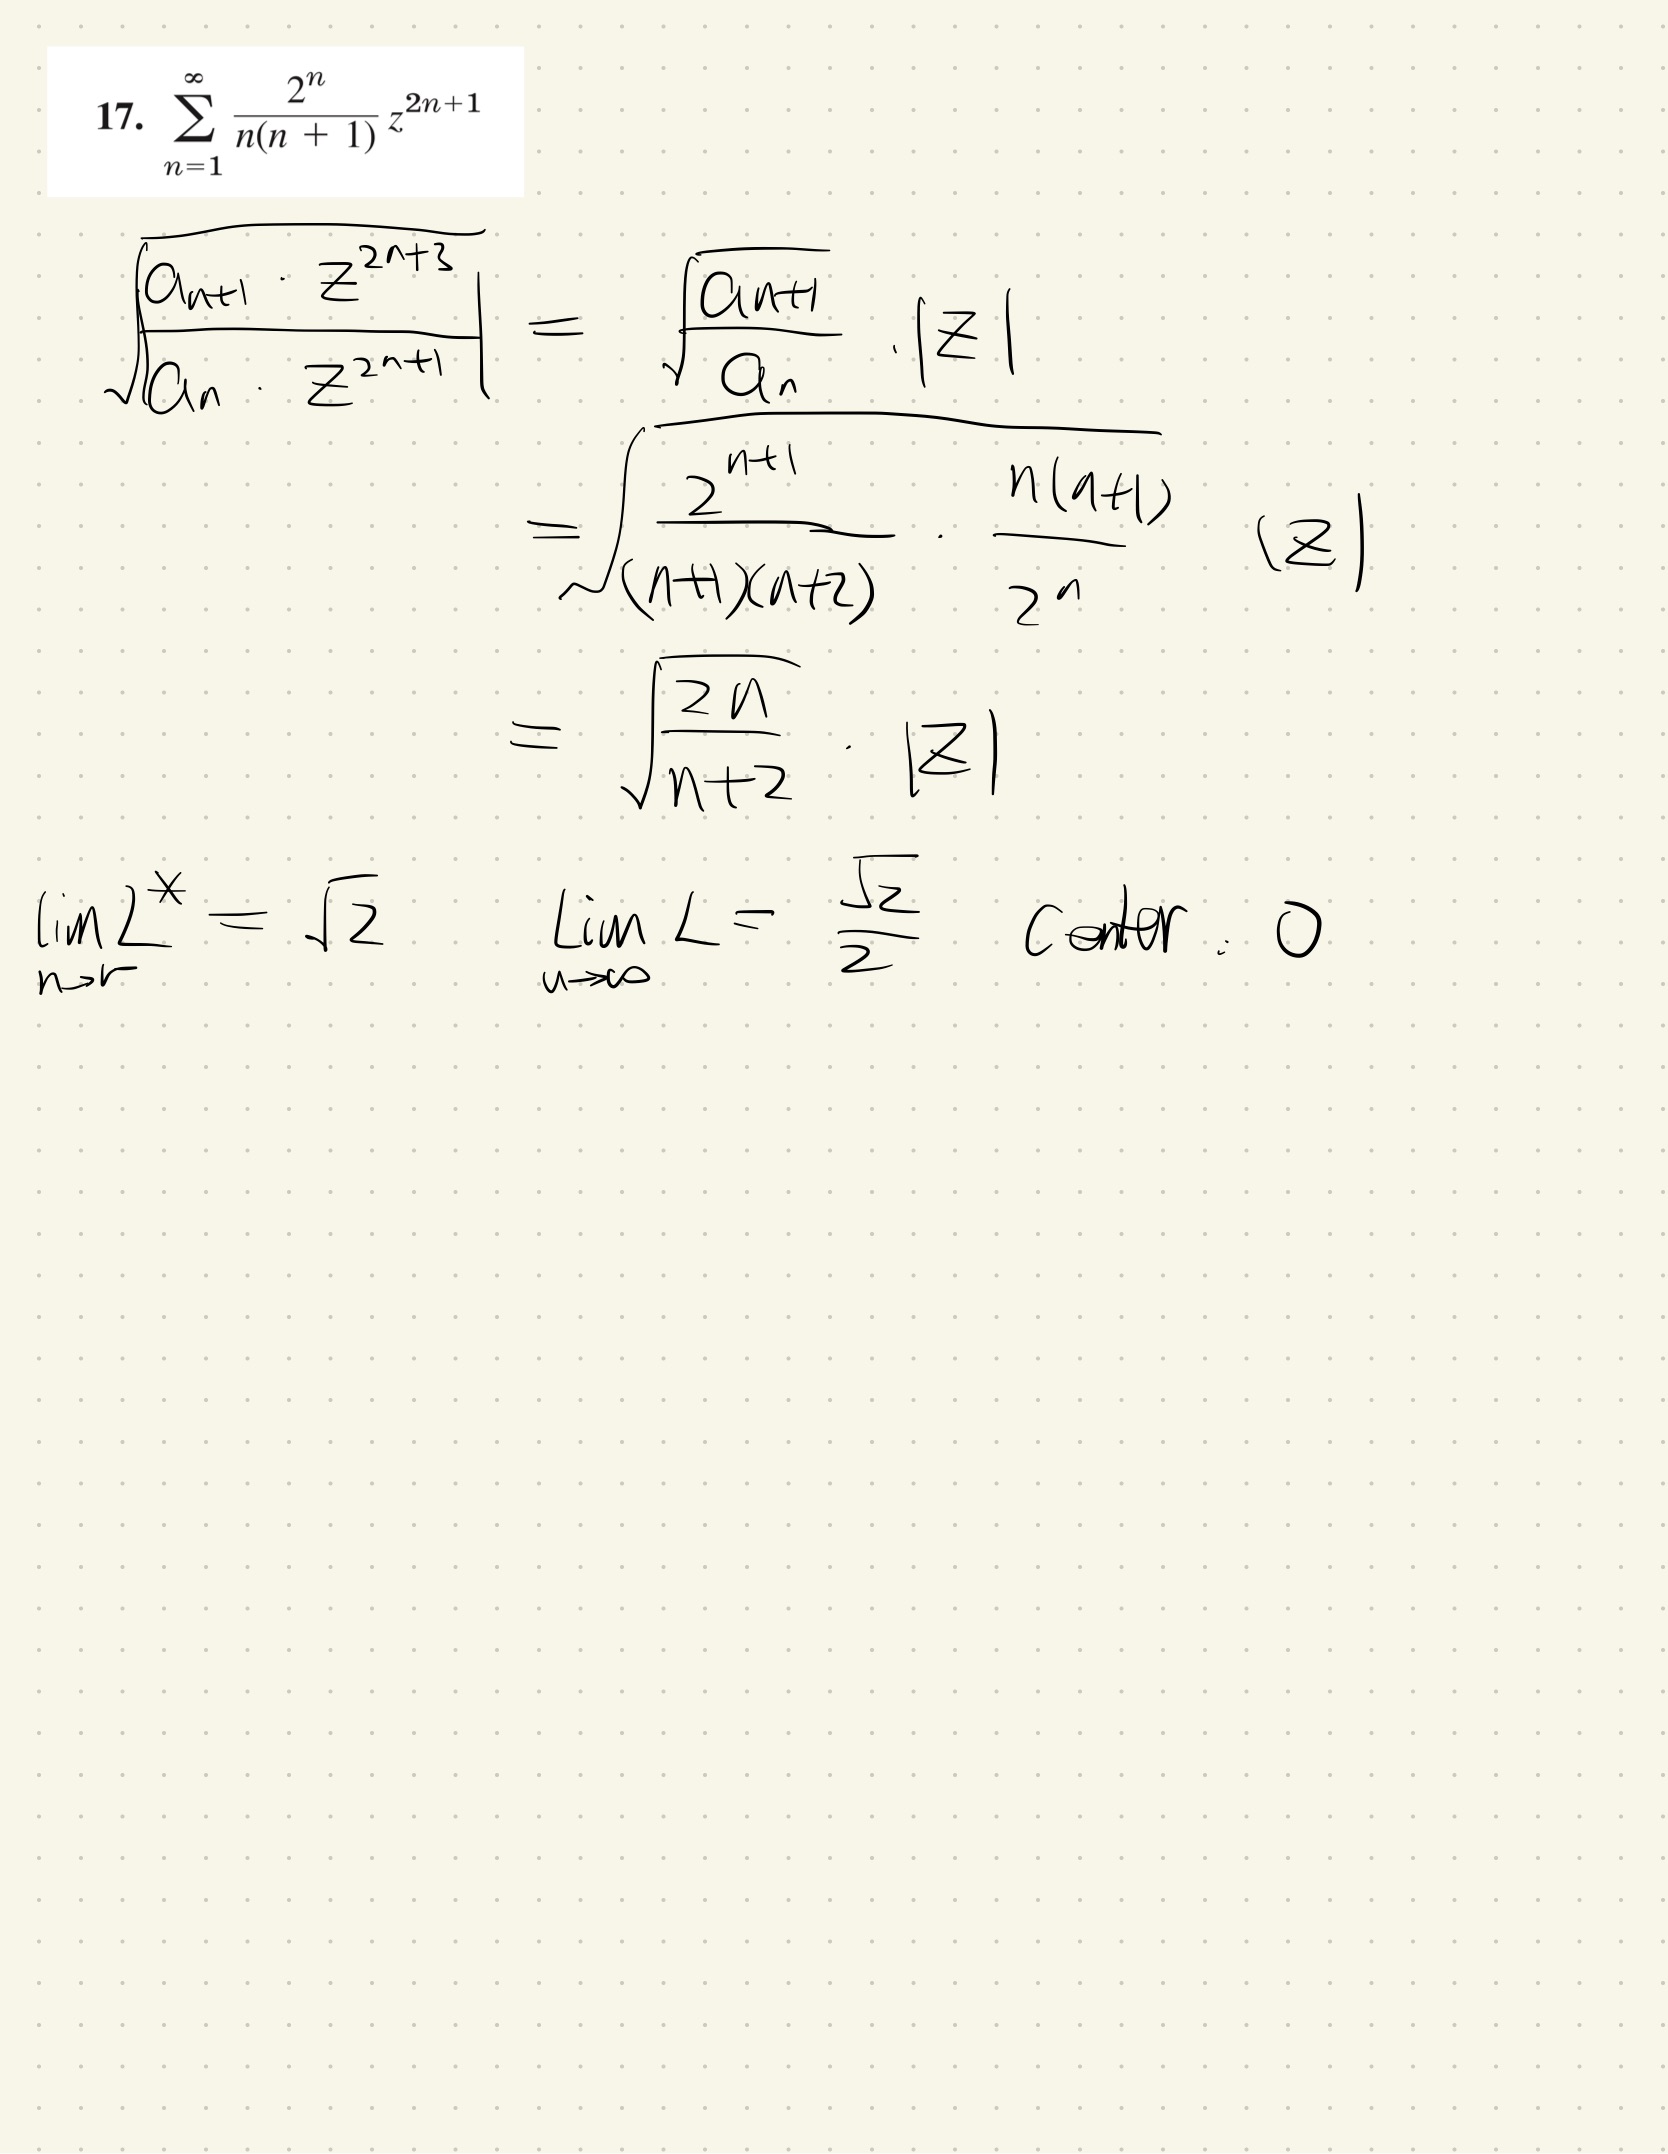 17. \sum_{n=1}^{\infty} \frac{2^n}{n(n + 1)} z^{2n+1}
\sqrt{\left|\frac{a_{n+1} \cdot z^{2n+3}}{a_n \cdot z^{2n+1}}\right|} = \sqrt{\frac{a_{n+1}}{a_n}} \cdot |z|
= \sqrt{\frac{2^{n+1}}{(n+1)(n+2)} \cdot \frac{n(n+1)}{2^n}} |z|
= \sqrt{\frac{2n}{n+2}} \cdot |z|
\lim_{n \to r} L^* = \sqrt{2} \quad \lim_{n \to \infty} L = \frac{\sqrt{2}}{2} \quad Center: 0